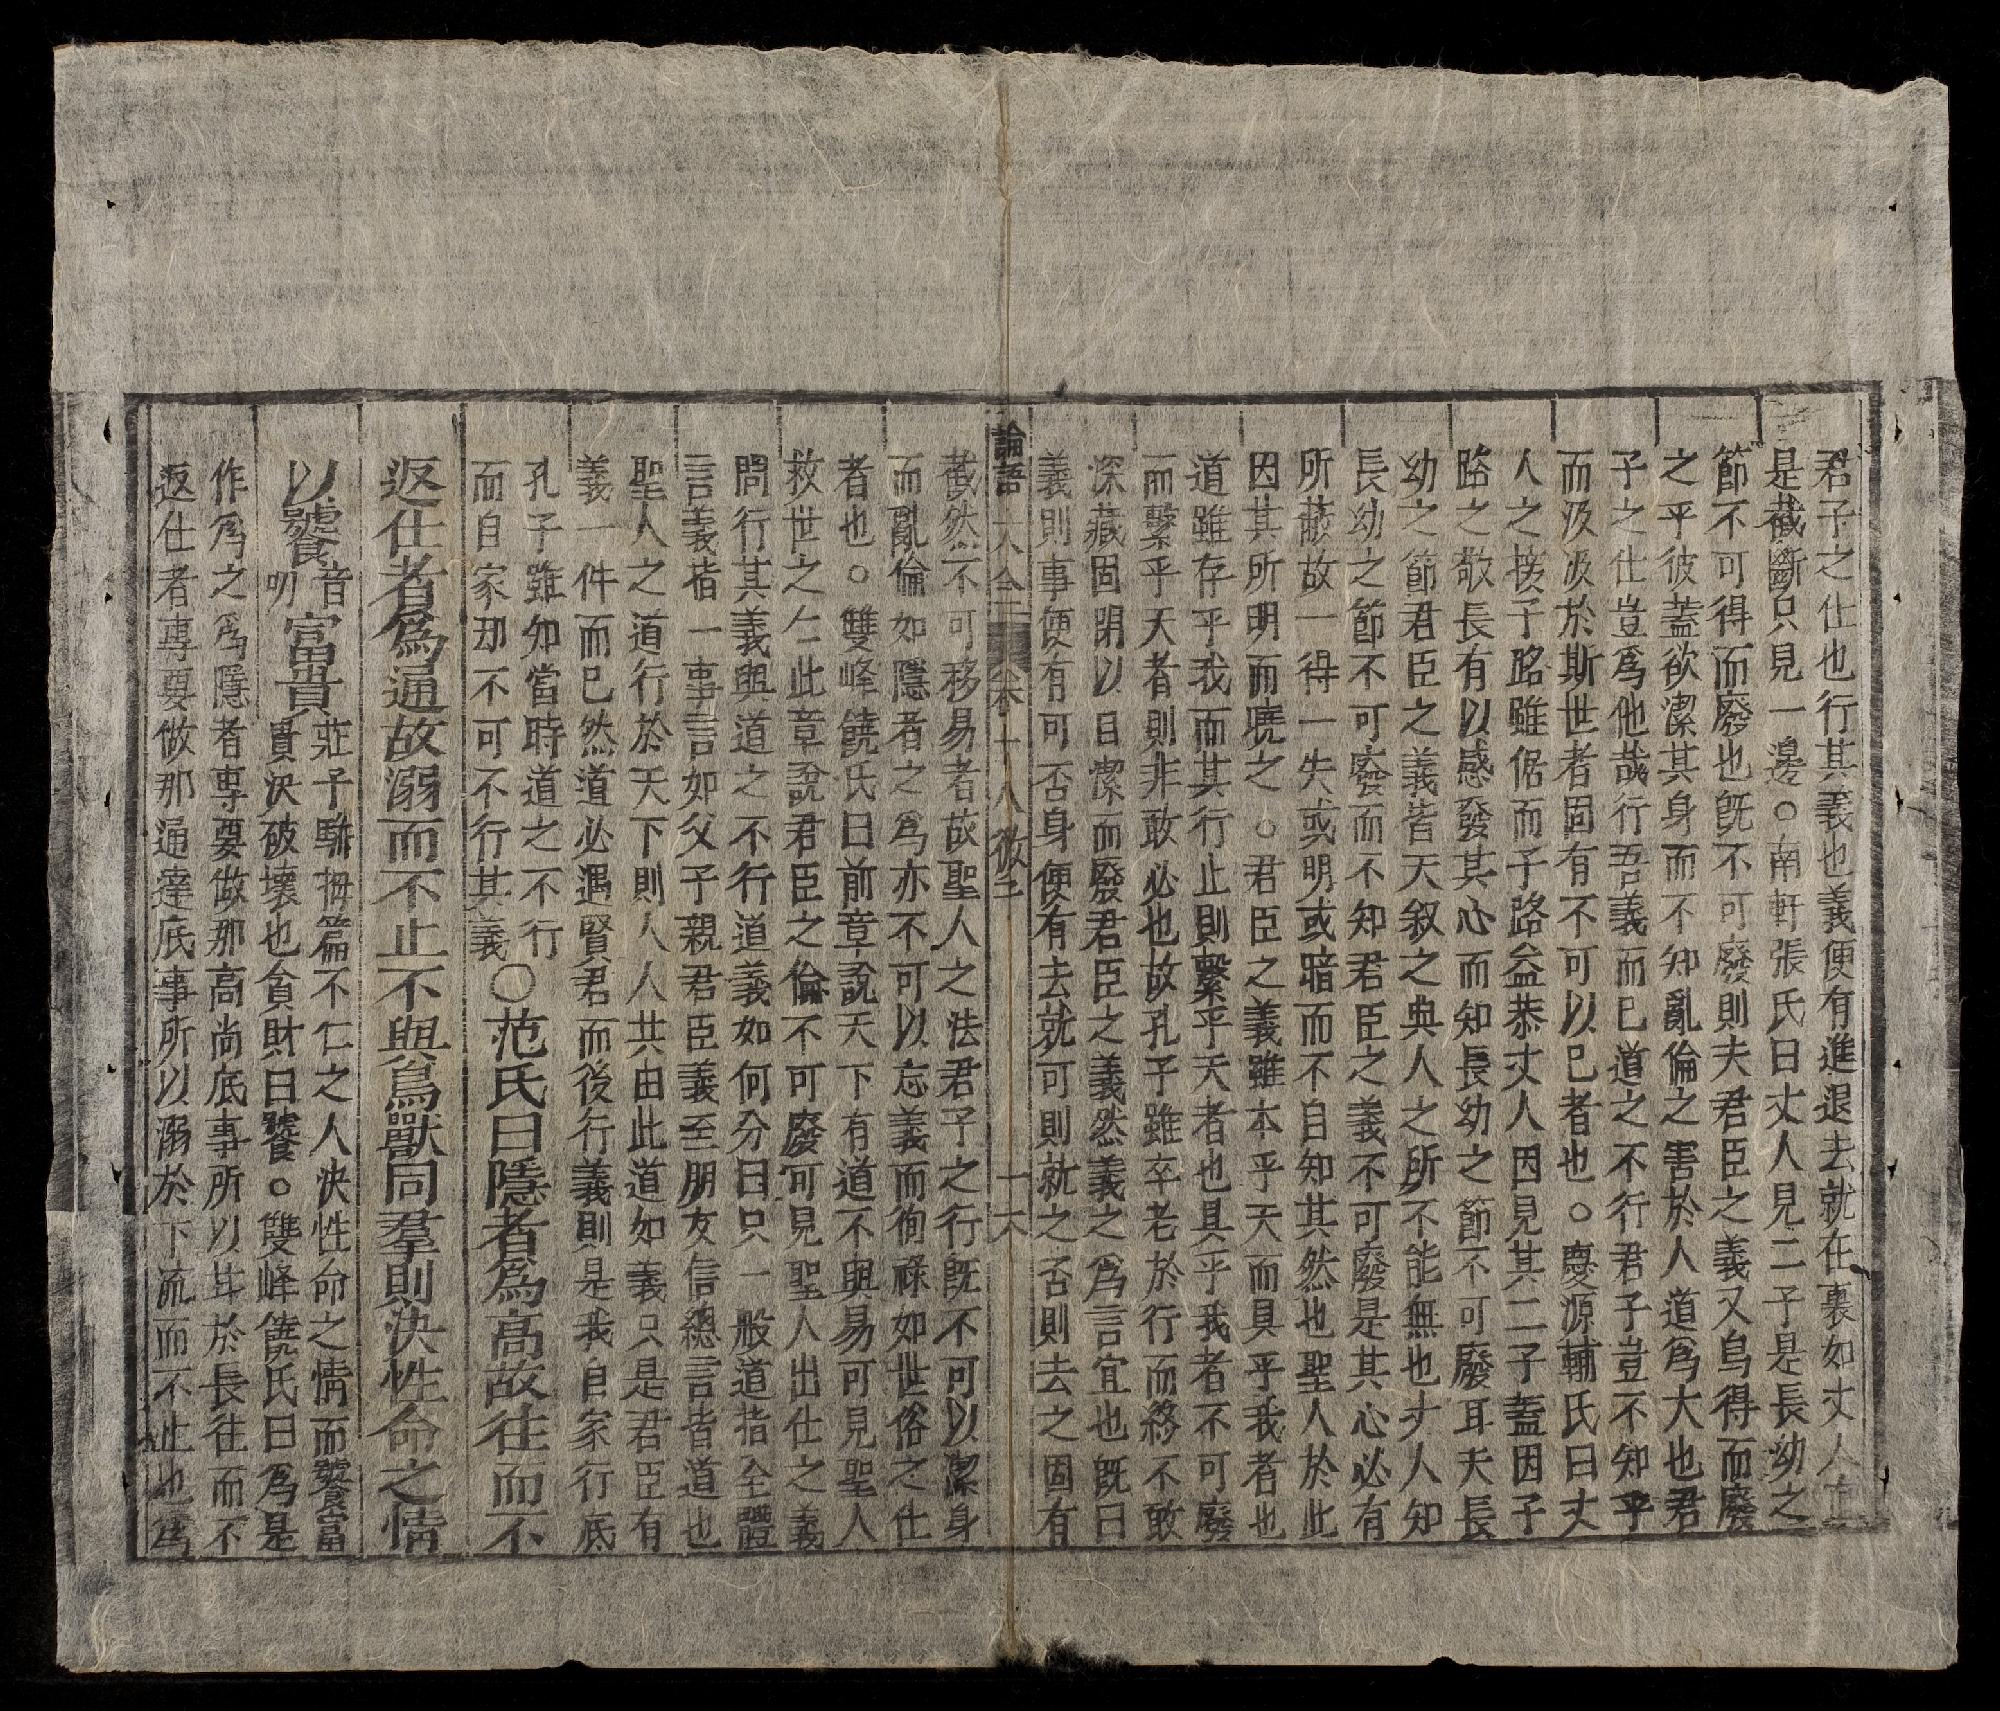 君子之仕也行其義也義便有進退去就在裏如丈人直
是截斷只見一邊○南軒張氏曰丈人見二子是長幼之
節不可得而廢也旣不可廢則夫君臣之義又烏得而廢
之乎彼蓋欲潔其身而不知亂倫之害於人道爲大也君
子之仕豈爲他哉行吾義而已道之不行君子豈不知乎
而汲汲於斯世者固有不可以已者也○慶源輔氏曰丈
人之接子路雖倨而子路益恭丈人因見其二子蓋因子
路之敬長有以感發其心而知長幼之節不可廢耳夫長
幼之節君臣之義皆天叙之典人之所不能無也丈人知
長幼之節不可廢而不知君臣之義不可廢是其心必有
所蔽故一得一失或明或暗而不自知其然也聖人於此
因其所明而曉之○君臣之義雖本乎天而具乎我者也
道雖存乎我而其行止則繫乎天者也具乎我者不可廢
而繫乎天者則非敢必也故孔子雖卒老於行而終不敢
深藏固閉以自潔而廢君臣之義然義之爲言宜也旣曰
義則事便有可否身便有去就可則就之否則去之固有
論語大全 卷十八 微子 十六
截然不可移易者故聖人之法君子之行旣不可以潔身
而亂倫如隱者之爲亦不可以忘義而徇祿如世俗之仕
者也○雙峰饒氏曰前章說天下有道不與易可見聖人
救世之仁此章說君臣之倫不可廢可見聖人出仕之義
問行其義與道之不行道義如何分曰只一般道指全體
言義指一事言如父子親君臣義至朋友信總言皆道也
聖人之道行於天下則人人共由此道如義只是君臣有
義一件而已然道必遇賢君而後行義則是我自家行底
孔子雖知當時道之不行
而自家却不可不行其義
○范氏曰隱者爲高故往而不
返仕者爲通故溺而不止不與鳥獸同羣則決性命之情
以饕
音
叨
富貴
莊子駢拇篇不仁之人決性命之情而饕富
貴決破壞也貪財曰饕○雙峰饒氏曰爲是
作爲之爲隱者專要做那高尚底事所以其於長往而不
返仕者專要做那通達底事所以溺於下流而不止也爲